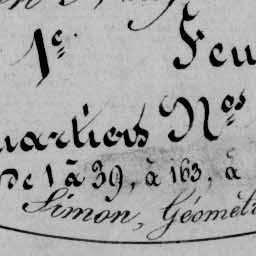 1e Feu
uartiers Nos
de 1 à 39, à 163, à
Simon, Géomét